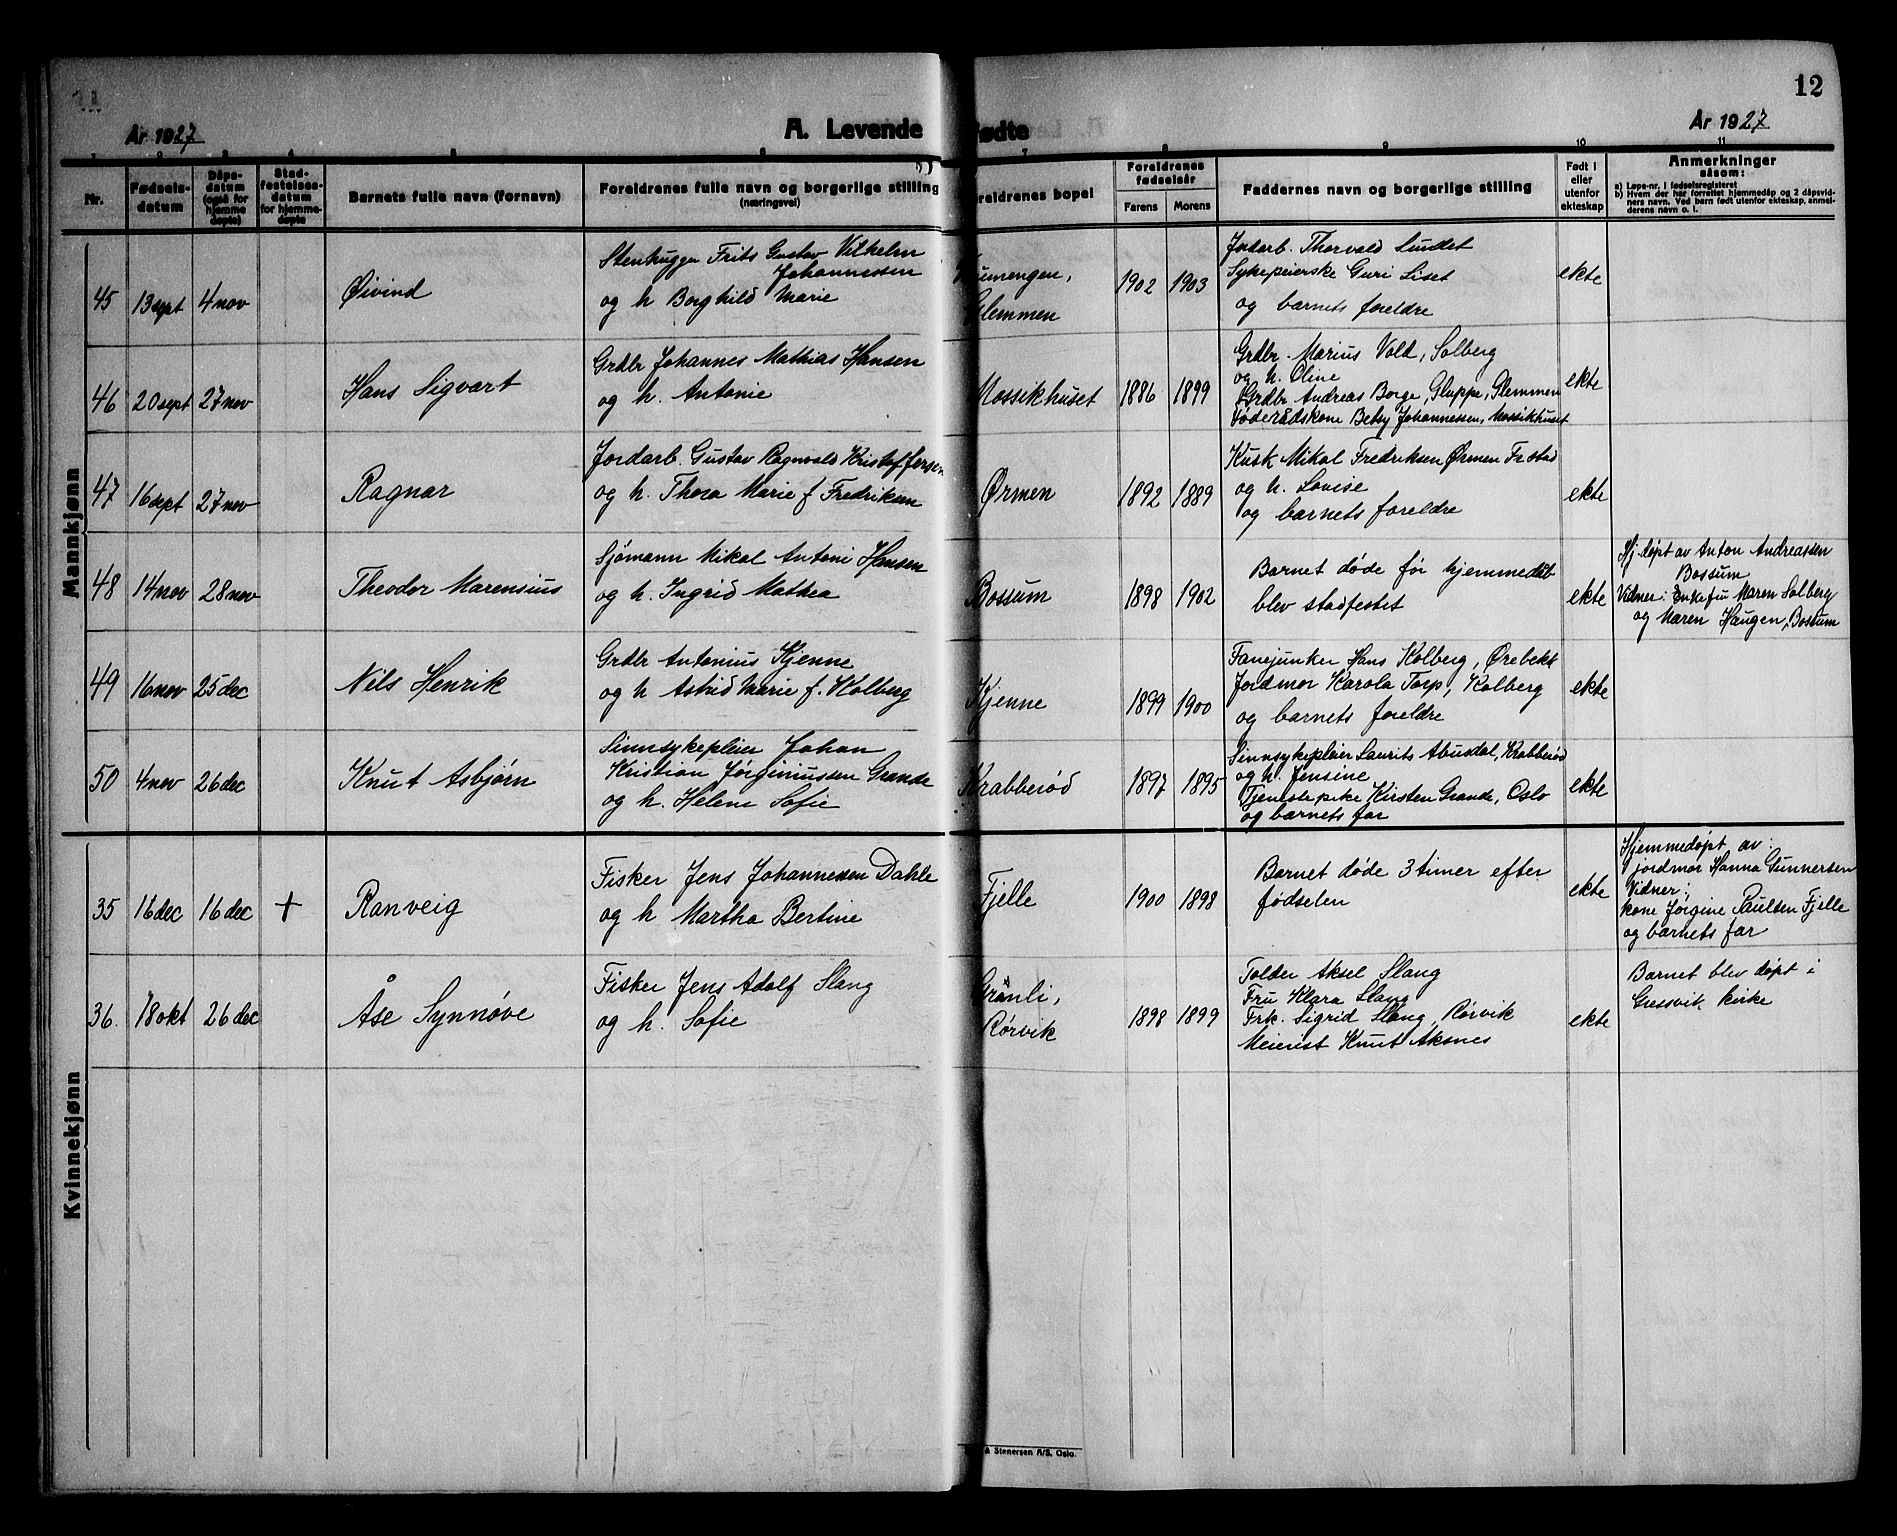 12
År 1927
A. Levende Fødte
År 1927
Nr.
Fødsels-
datum
Dåps-
datum
(også for
hjemme
døpte)
Stad-
festelses-
datum
for hjemme-
døpte
Barnets fulle navn (fornavn)
Foreldrenes fulle navn og borgerlige stilling
(næringsvei)
Foreldrenes bopel
Foreldrenes
fødselsår
Farens
Morens
Faddernes navn og borgerlige stilling
Født i
eller
utenfor
ekteskap
Anmerkninger
såsom:
a) Løpe-nr. i fødselsregisteret
b) Hvem der har forrettet hjemmedåp og 2 dåpsvid-
ners navn. Ved barn født utenfor ekteskap, anmel-
derens navn o. l.
Mannkjønn
45 13 sept 4 nov Øivind
Stenhugger Frits Gustav Vilhelm
Johannessen
og h Borghild Marie
Glemmen
1902 1903
Jordarb. Thorvald Lundet
Sykepleierske Guri Liset
og barnets foreldre
ekte
46 20 sept 27 nov Hans Sigvart
Grdbr Johannes Mathias Hansen
og h. Antonie
Mossikhuset
1886 1899
Grdbr. Marius Vold, Solberg
og h. Oline
Grdbr Andreas Borge, Gluppe, Glemmen
Føderådskone Betsy Johannessen, Mossikhuset
ekte
47 16 sept 27 nov Ragnar
Jordarb. Gustav Ragnvald Kristoffersen
og h. Thora Marie f Fredriksen
Ørmen
1892 1889
Kusk Mikal Fredriksen Ørmen Fr.stad
og h. Lovise
og barnets foreldre
ekte
48 14 nov 28 nov Theodor Marensius
Sjømann Mikal Antoni Hansen
og h. Ingrid Mathea
Bossum
1898 1902
Barnet døde før hjemmedåb
blev stadfestet
ekte
Hj.døpt av Anton Andreassen
Bossum
Vidner: Enkefru Maren Solberg
og Maren Haugen, Bossum
49 16 nov 25 dec Nils Henrik
Grdbr Antonius Kjenne
og h Astrid Marie f. Kolberg
Kjenne
1899 1900
Fanejunker Hans Kolberg, Ørebekk
Jordmor Karola Torp, Kolberg
og barnets foreldre
ekte
50 4 nov 26 dec Knut Asbjørn
Sinnsykepleier Johan
Kristian Jørginiussen Grande
og h. Helene Sofie
Krabberød
1897 1895
Sinnsykepleier Laurits Abusdal, Krabberød
og h. Jensine
Tjenestepike Kirsten Grande, Oslo
og barnets far
ekte
Kvinnekjønn
35 16 dec 16 dec + Ranveig
Fisker Jens Johannessen Dahle
og h Martha Bertine
Fjelle
1900 1898
Barnet døde 3 timer efter
fødselen
ekte
Hjemmedøpt av:
jordmor Hanna Gunnersen
Vidner:
kone Jørgine Paulsen Fjelle
og barnets far
36. 18 okt 26 dec Åse Synnøve
Fisker Jens Adolf Slang
og h. Sofie
Grønli,
Rørvik
1898 1899
Tolder Aksel Slang
Fru Klara Slang
Frk. Sigrid Slang, Rørvik
Meierist Knut Aksnes
ekte
Barnet blev døpt i
Gressvik kirke
& Stenersen A/S, Oslo.